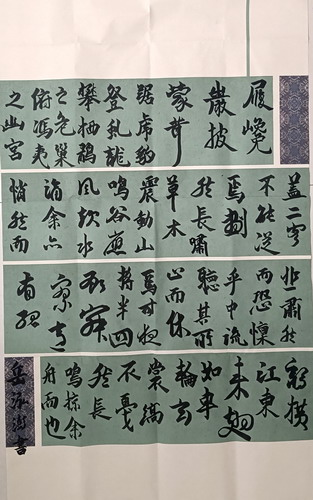 履巉
巖披
蒙茸
踞虎豹
登虬龍
攀栖鶻
之危巢
俯馮夷
之幽宮
蓋二客
不能從
焉劃
然長嘯
草木
震動山
鳴谷應
風起水
涌余亦
悄然而
悲肅然
而恐懍
乎中流
聽其所
止而休
焉時夜
將半四
顧寂
寥適
有孤
鶴橫
江東
來翅
如車
輪玄
裳縞
衣戛
然長
鳴掠余
舟而也
岳書